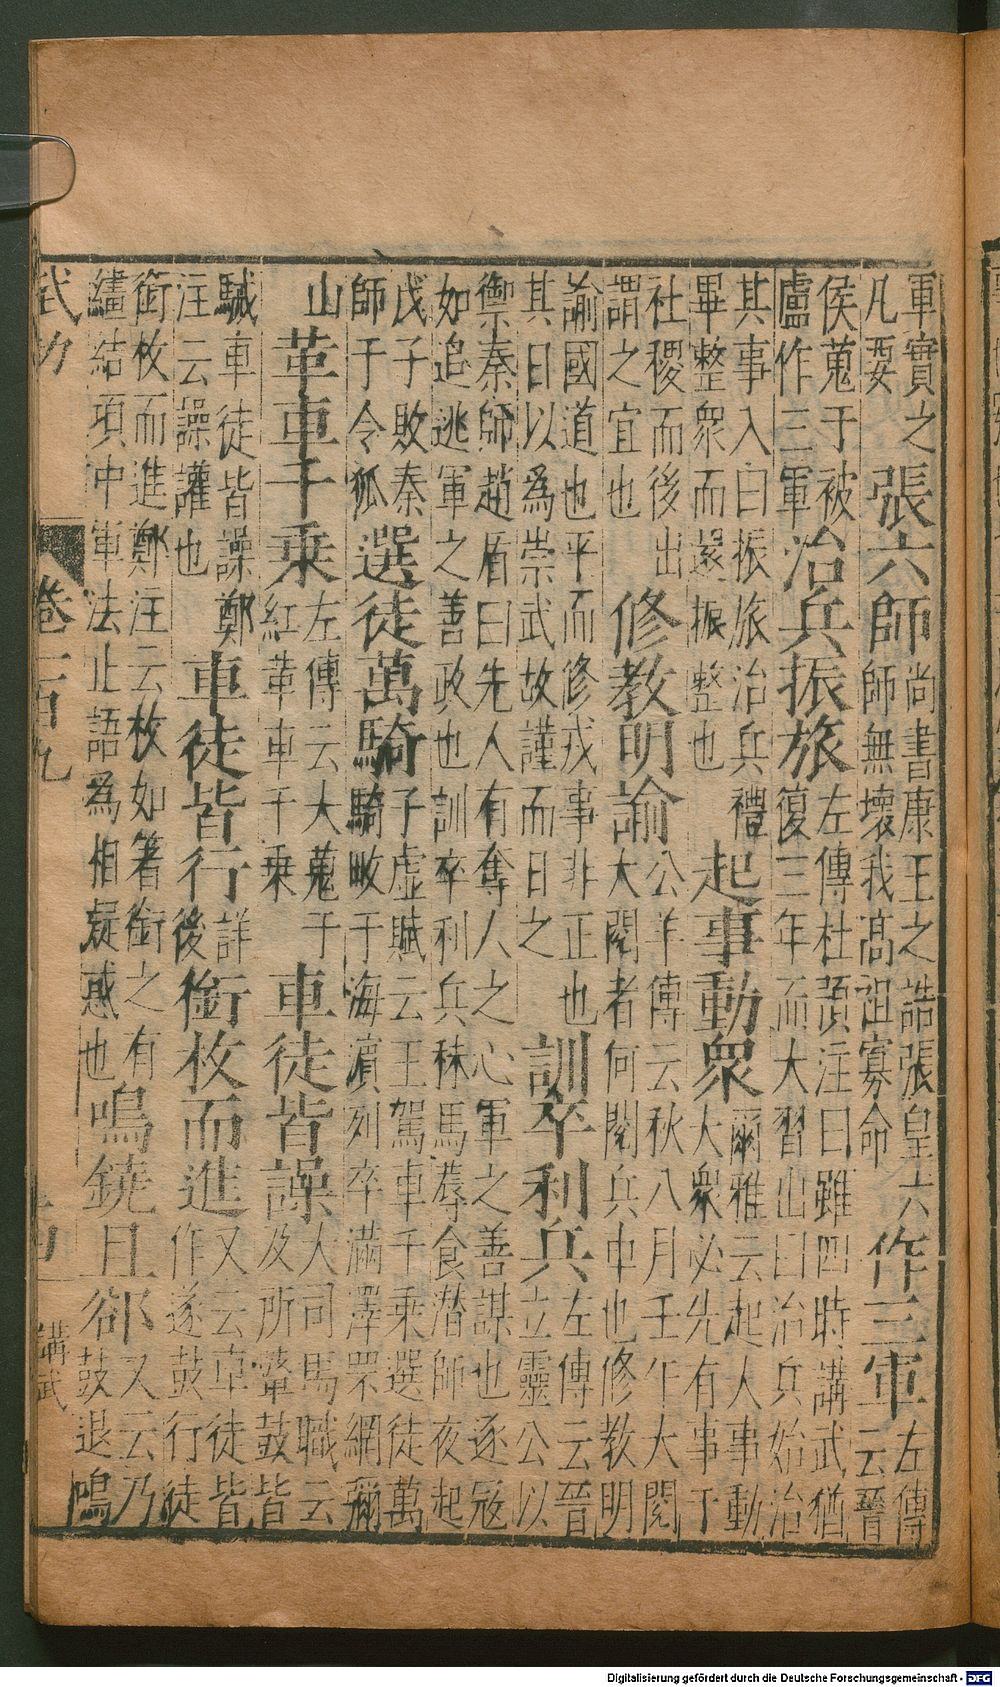 軍實之凡要張六師尚書康王之誥張皇六師無壞我高祖寡命作三軍左傳云晉
侯蒐于被廬作三軍治兵振旅左傳杜預注曰雖四時講武猶復三年而大習出曰治兵始治
其事入曰振旅治兵禮畢整衆而還振整也起事動衆爾雅云起人事動大衆必先有事于
社稷而後出謂之宜也修教明諭公羊傳云秋八月壬午大閱大閱者何閱兵中也修教明
諭國道也平而修戎事非正也其日以為崇武故謹而日之訓卒利兵左傳云晉立靈公以
禦秦師趙盾曰先人有奪人之心軍之善謀也逐寇如追逃軍之善政也訓卒利兵秣馬蓐食潛師夜起
戊子敗秦師于令狐選徒萬騎子虛賦云王駕車千乘選徒萬騎畋于海濱列卒滿澤罘網彌
山革車千乗左傳云大蒐于紅革車千乗車徒皆譟大司馬職云及所獘鼓皆
駴車徒皆譟鄭注云譟讙也車徒皆行詳後銜枚而進又云車徒皆作遂鼓行徒
銜枚而進鄭注云枚如箸銜之有繣結項中軍法止語為相疑惑也鳴鐃且郤又云乃鼓退鳴
武功 卷一百九 講武
Digitalisierung gefördert durch die Deutsche Forschungsgemeinschaft - DFG